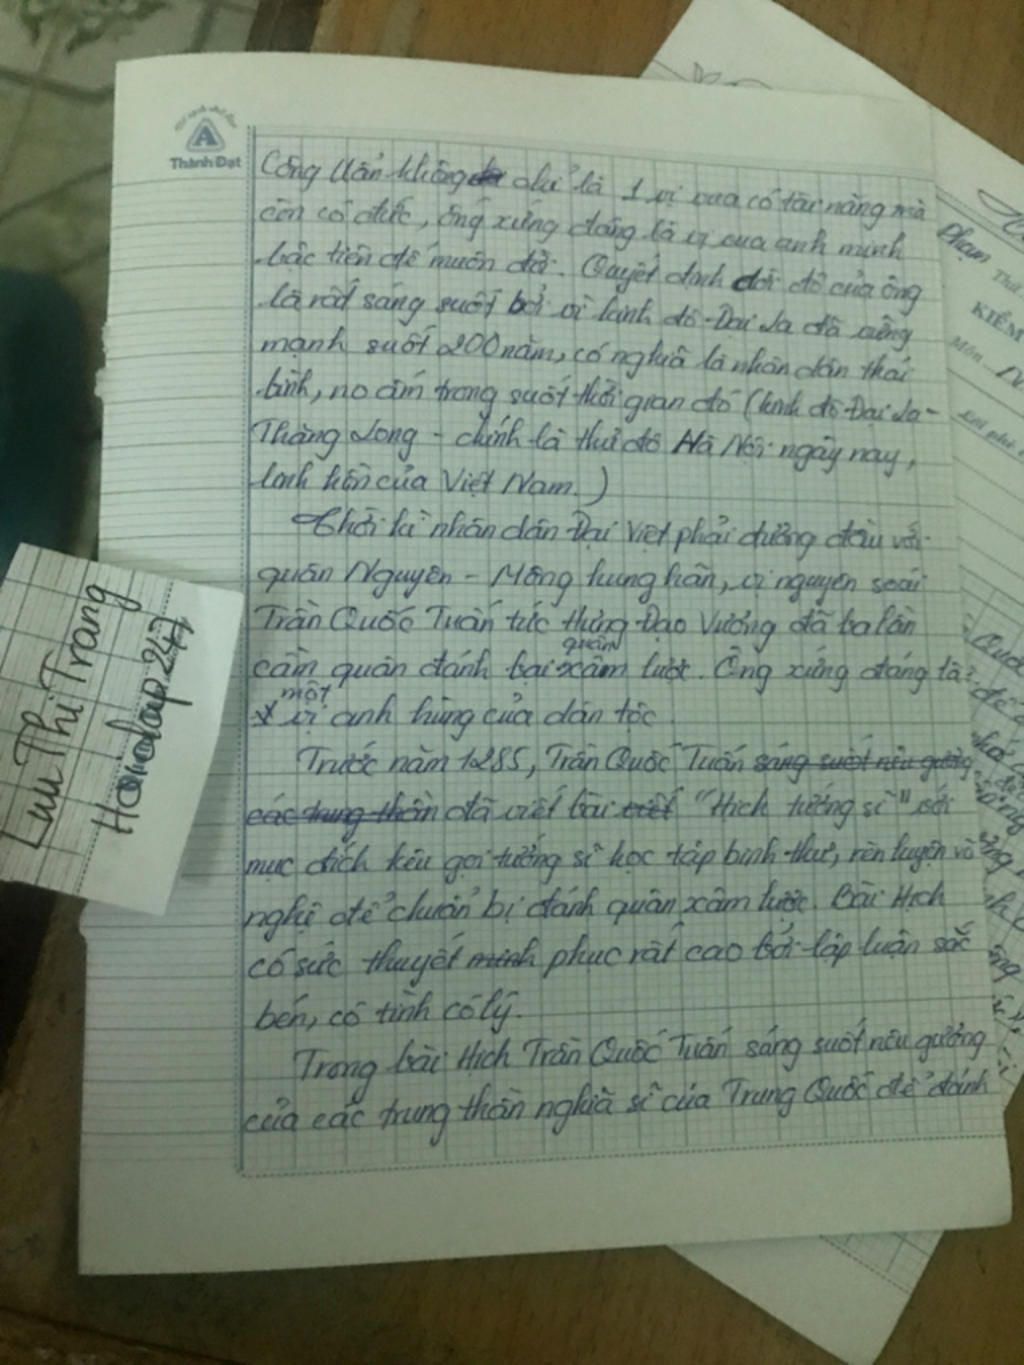 Thành Đạt
Công Uẩn không chỉ là 1 vị vua có tài năng mà
còn có đức, ông xứng đáng là vị vua anh minh
bậc tiên đế muôn đời. Quyết định dời đô của ông
là rất sáng suốt bởi vì kinh đô Đại La đã cường
mạnh suốt 200 năm, có nghĩa là nhân dân thái
bình, no ấm trong suốt thời gian đó (kinh đô Đại La -
Thăng Long - chính là thủ đô Hà Nội ngày nay,
linh hồn của Việt Nam.)
Thời kì nhân dân Đại Việt phải đương đầu với
quân Nguyên - Mông hung hãn, vị nguyên soái
Trần Quốc Tuấn tức Hưng Đạo Vương đã ba lần
cầm quân đánh bại quân xâm lược. Ông xứng đáng là
một vị anh hùng của dân tộc.
Trước năm 1285, Trần Quốc Tuấn sáng suốt nêu gương
các trung thần đã viết bài viết "Hịch tướng sĩ" với
mục đích kêu gọi tướng sĩ học tập binh thư, rèn luyện võ
nghệ để chuẩn bị đánh quân xâm lược. Bài Hịch
có sức thuyết minh phục rất cao bởi lập luận sắc
bén, có tình có lý.
Trong bài Hịch Trần Quốc Tuấn sáng suốt nêu gương
của các trung thần nghĩa sĩ của Trung Quốc để đánh
Lưu Thị Trang
Hoidap247
Phạm
KIỂM
Môn